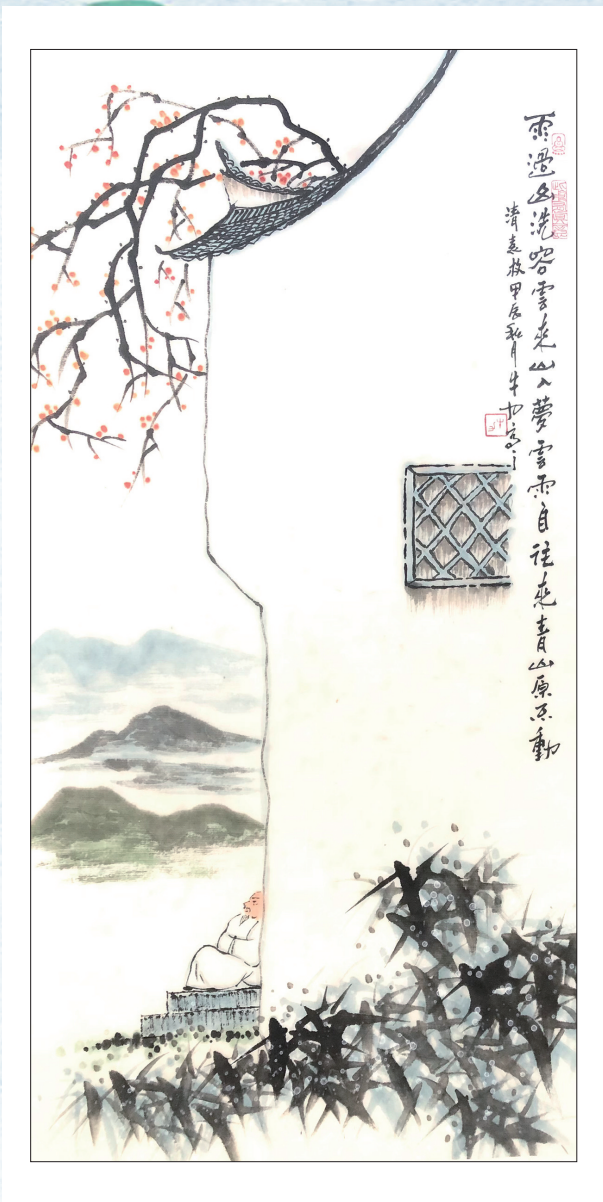 雨過山洗容雲來山入夢雲雨自往來青山原不動
清袁枚甲辰秋月牛寫之